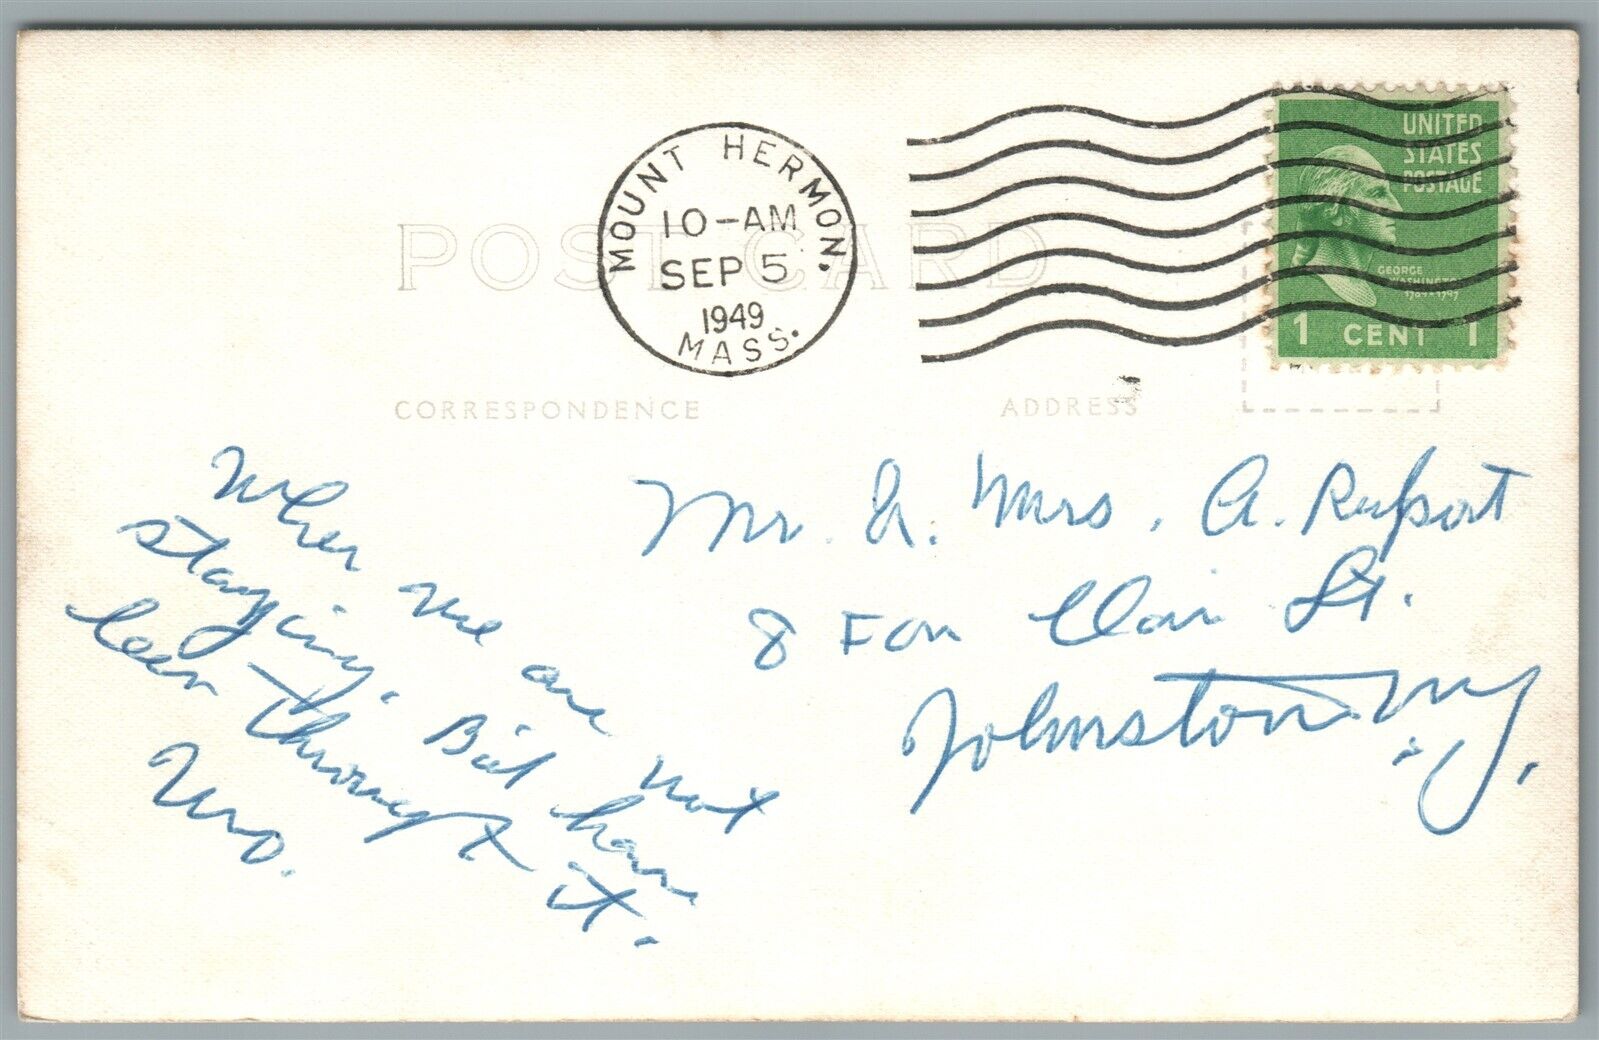 MOUNT HERMON.
10-AM
SEP 5
1949
MASS.
UNITED
STATES
POSTAGE
GEORGE
WASHINGTON
1789-1797
1 CENT 1
POST CARD
CORRESPONDENCE
ADDRESS
When we are not
staying. But have
been through it.
Mr. & Mrs. A. Rupport
8 Fon Clair St.
Johnstown N.Y.